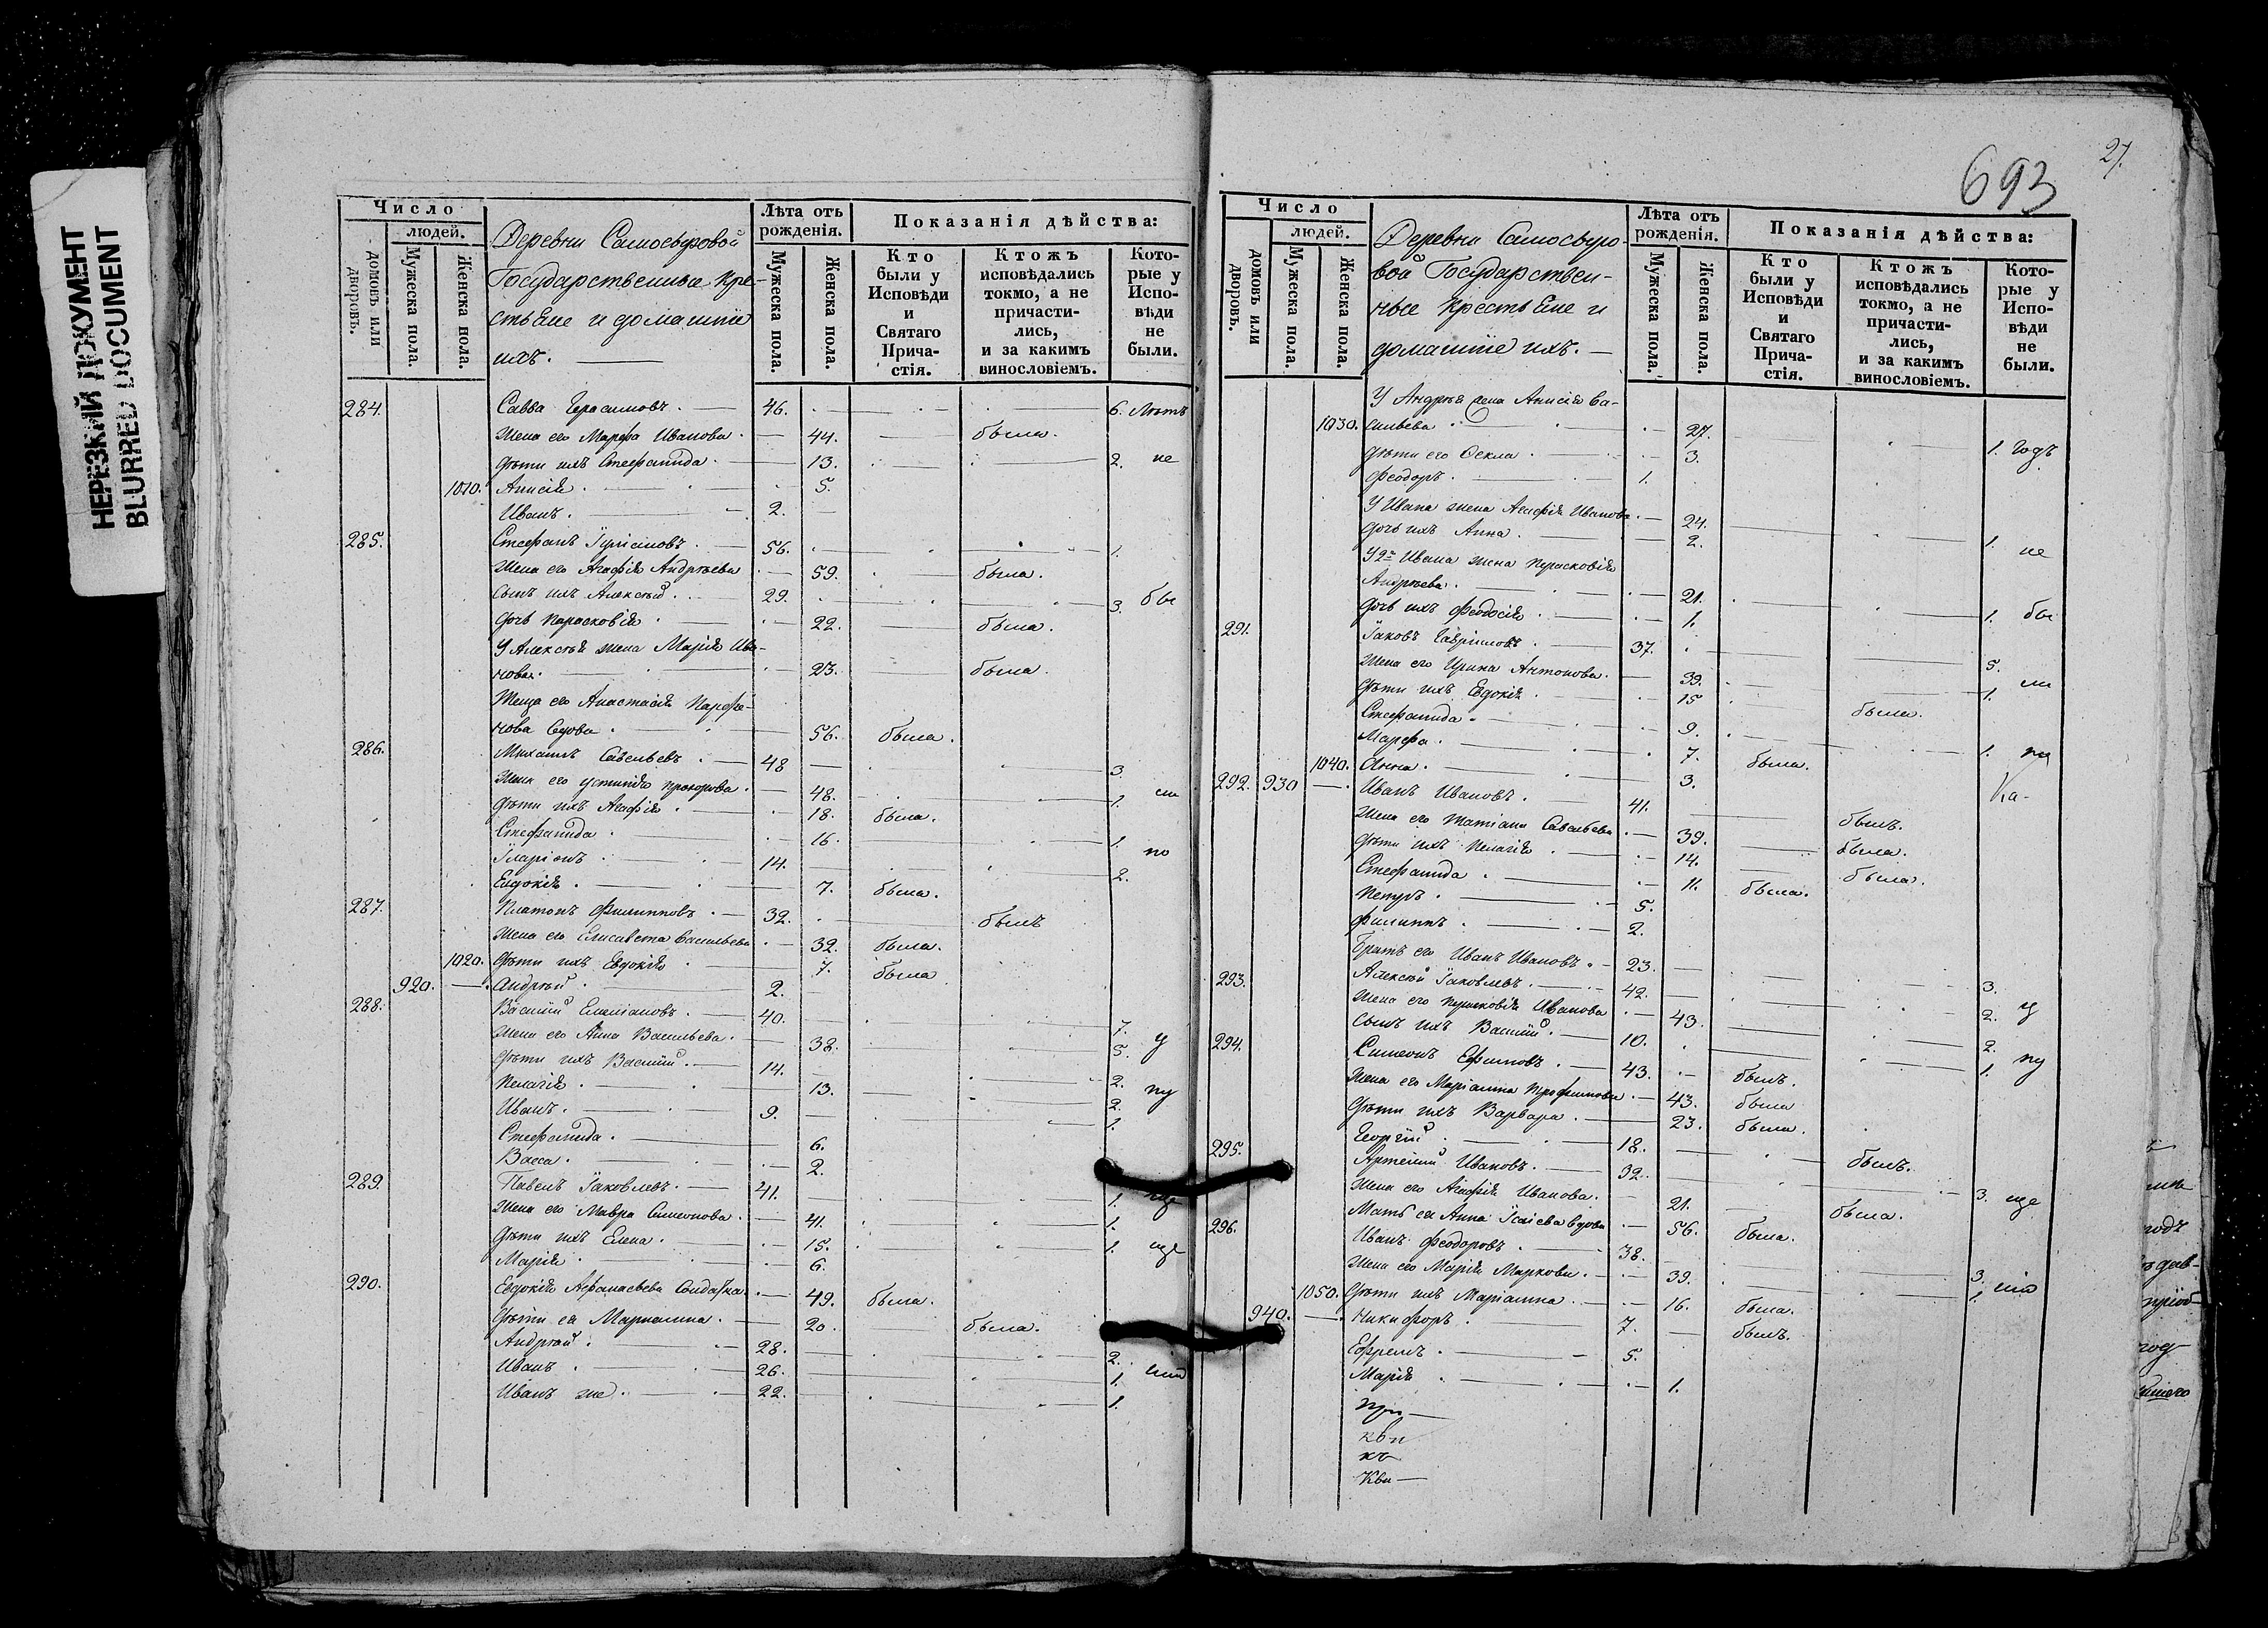 НЕРЕЗКИЙ ДОКУМЕНТ
BLURRED DOCUMENT
Число
людей.
домовъ или дворовъ.
Мужеска пола.
Женска пола.
Деревни Самосыровой
Государственные Кре-
стьяне и домашніе
ихъ.
Лѣта отъ
рожденія.
Мужеска пола.
Женска пола.
Показанія дѣйства:
Кто
были у
Исповѣди
и
Святаго
Прича-
стія.
Ктожъ
исповѣдались
токмо, а не
причасти-
лись,
и за какимъ
винословіемъ.
Кото-
рые у
Испо-
вѣди
не
были.
284. Савва Герасимовъ. 46. 6. Лѣтъ
Жена его Марфа Иванова. 44. была.
Дѣти ихъ Стефанида. 13. 2. не
1010. Анисія. 5.
Иванъ. 2.
285. Стефанъ 56. 1.
Жена его Агафія Андреева 59. была.
Сынъ ихъ Алексѣй. 29. 3. бы
Дочь Парасковія. 22. была.
У Алексѣя жена Марія Ива-
нова. 23. была.
Теща его Анастасія Парфе-
нова вдова. 56. была.
286. Михаилъ Савельевъ. 48 3.
Жена его Устинія Прохорова. 48. 1. ли
Дѣти ихъ Агафія. 18. была.
Стефанида. 16. 1.
Іларіонъ. 14. 2. по
Евдокія. 7. была.
287. Платонъ Филипповъ. 32. былъ
Жена его Елисавета Васильева 32. была.
1020. Дѣти ихъ Евдокія 7. была
920. Андрей. 2.
288. Василій Емеліановъ. 40. 7.
Жена его Анна Васильева. 38. 5. у
Дѣти ихъ Василій. 14. 2.
Пелагія. 13. 2. пу
Иванъ. 9. 1.
Стефанида. 6.
Васса. 2.
289. Павелъ Іаковлевъ. 41. 1. ще
Жена его Мавра Симеонова. 41. 1.
Дѣти ихъ Елена. 15. 1. ще
Марія. 6.
290. Евдокія Афанасьева Солдатка. 49. была.
Дѣти ея Маріамна. 20. была.
Андрей. 28. 2.
Иванъ. 26. 1. ній
Иванъ же. 22. 1.
693
27.
Число
людей.
домовъ или дворовъ.
Мужеска пола.
Женска пола.
Деревни Самосыро-
вой Государствен-
ные Крестьяне и
домашніе ихъ.
Лѣта отъ
рожденія.
Мужеска пола.
Женска пола.
Показанія дѣйства:
Кто
были у
Исповѣди
и
Святаго
Прича-
стія.
Ктожъ
исповѣдались
токмо, а не
причасти-
лись,
и за какимъ
винословіемъ.
Кото-
рые у
Испо-
вѣди
не
были.
У Андрея жена Анисія Ва-
1030. сильева 27. 1. годъ
Дѣти его Фекла. 3.
Феодоръ. 1.
У Ивана жена Агафія Иванова. 24. 1. не
Дочь ихъ Анна. 2.
У 2го Ивана жена Парасковія
Андреева. 21. 1. бы
Дочь ихъ Феодосія. 1.
291. Іаковъ Гавріиловъ. 37. 5.
Жена его Ирина Антонова. 39. 1. ли
Дѣти ихъ Евдокія. 15 была.
Стефанида. 9. 1. по
Марфа. 7. была.
1040. Анна. 3. Ка-
292. 930 Иванъ Ивановъ. 41. былъ.
Жена его Татіана Савельева. 39. была.
Дѣти ихъ Пелагія. 14. была.
Стефанида. 11. была.
Петръ. 5.
Филиппъ. 2.
Братъ его Иванъ Ивановъ. 23. 3.
293. Алексѣй Іаковлевъ. 42. 2. у
Жена его Парасковія Иванова 43. 2.
Сынъ ихъ Василій. 10. 1. пу
294. Симеонъ Ефимовъ. 43. былъ.
Жена его Маріамна Трофимова. 43. была
Дѣти ихъ Варвара. 23. была.
Георгій. 18. былъ.
295. Артемій Ивановъ. 32. 3. ще
Жена его Агафія Иванова. 21. была.
Мать ея Анна Ісаіева вдова 56. была.
296. Иванъ Феодоровъ. 38. 3.
Жена его Марія Маркова. 39. 1. ній
1050. Дѣти ихъ Маріамна. 16. была.
940. Никифоръ. 7. былъ.
Ефремъ. 5.
Марія 1.